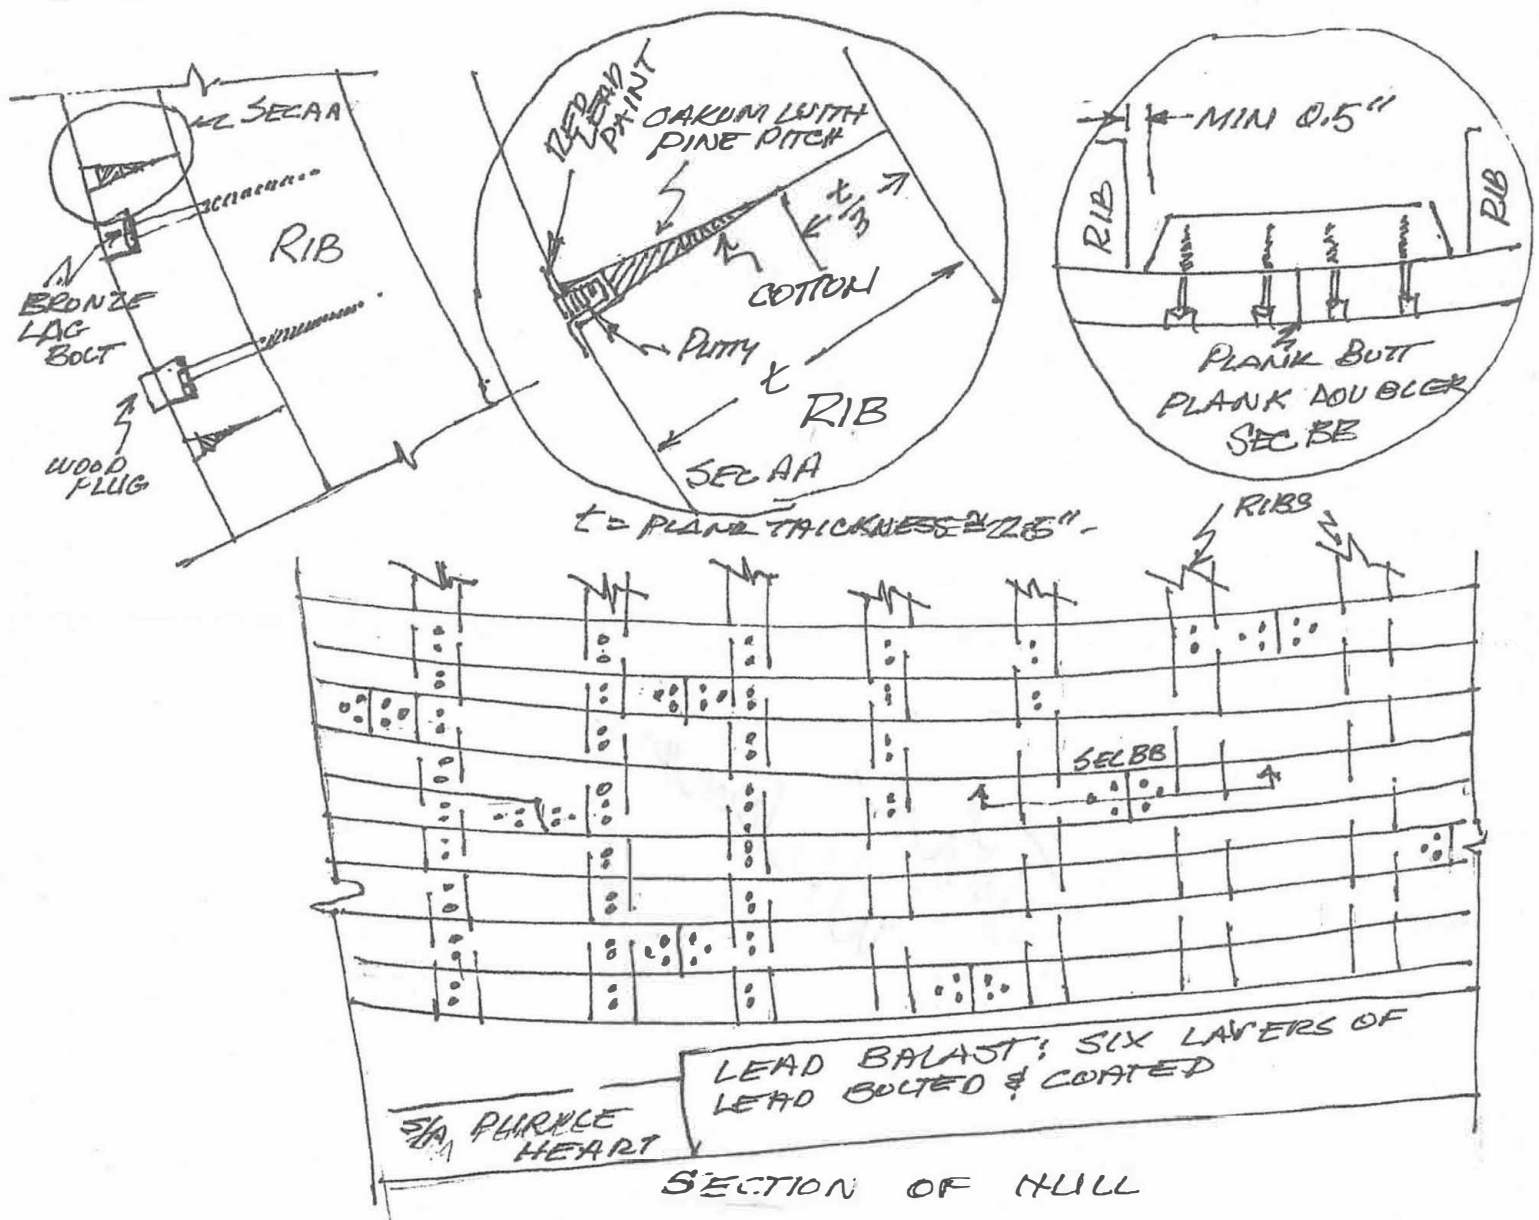 SEC AA
RIB
BRONZE
LAG
BOLT
WOOD
PLUG
RED
LEAD
PAINT
OAKUM WITH
PINE PITCH
t/3
COTTON
PUTTY
t
RIB
SEC AA
t = PLANK THICKNESS ≅
MIN 0.5"
RIB
RIB
PLANK BUTT
PLANK DOUBLER
SEC BB
RIBS
SEC BB
LEAD BALAST: SIX LAYERS OF
LEAD BOLTED & COATED
PURPLE
HEART
SECTION OF HULL